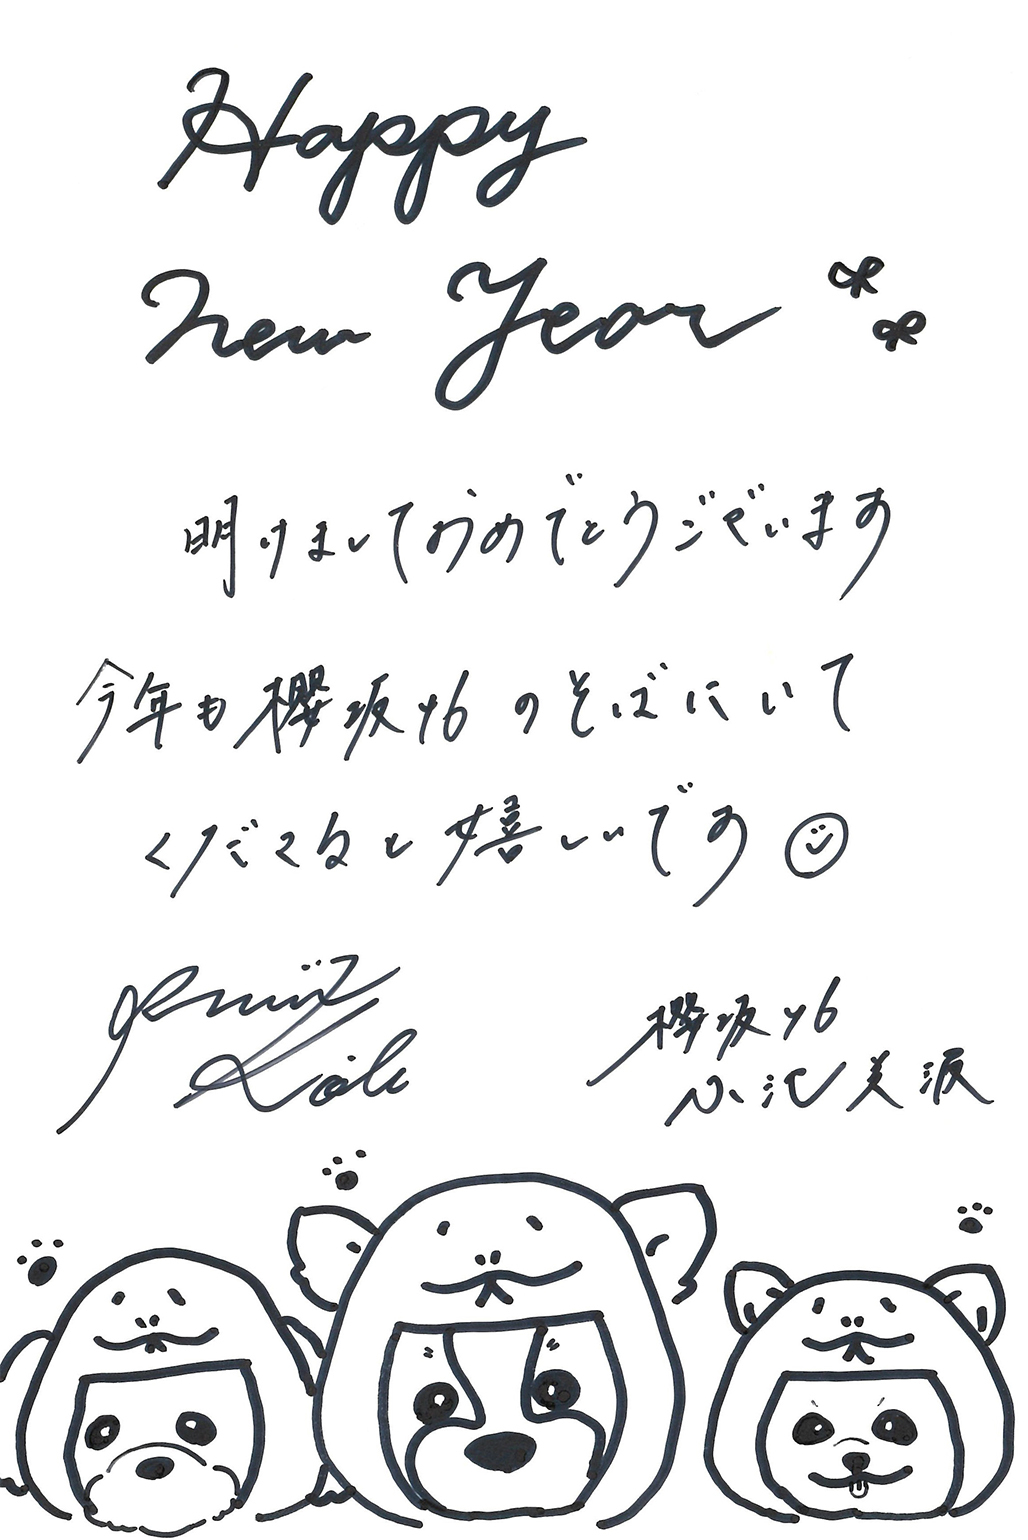 Happy
New Year
明けましておめでとうございます
今年も櫻坂46のそばにいて
くださると嬉しいです
櫻坂46
小池美波